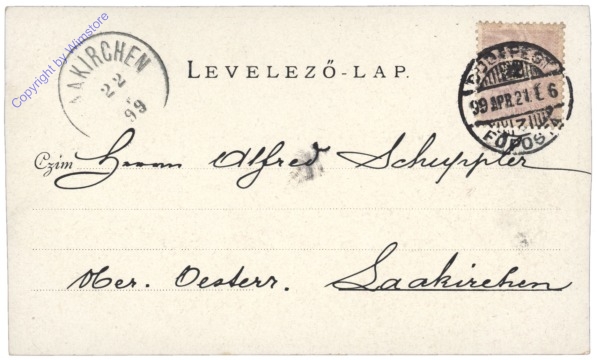 Copyright by Wimstore
AAKIRCHEN
99
LEVELEZŐ-LAP.
BUDAPEST
99 APR. 21. 6
FŐPOSTA
Czim Herrn Alfred Schuppler
Ober. Oesterr. Laakirchen